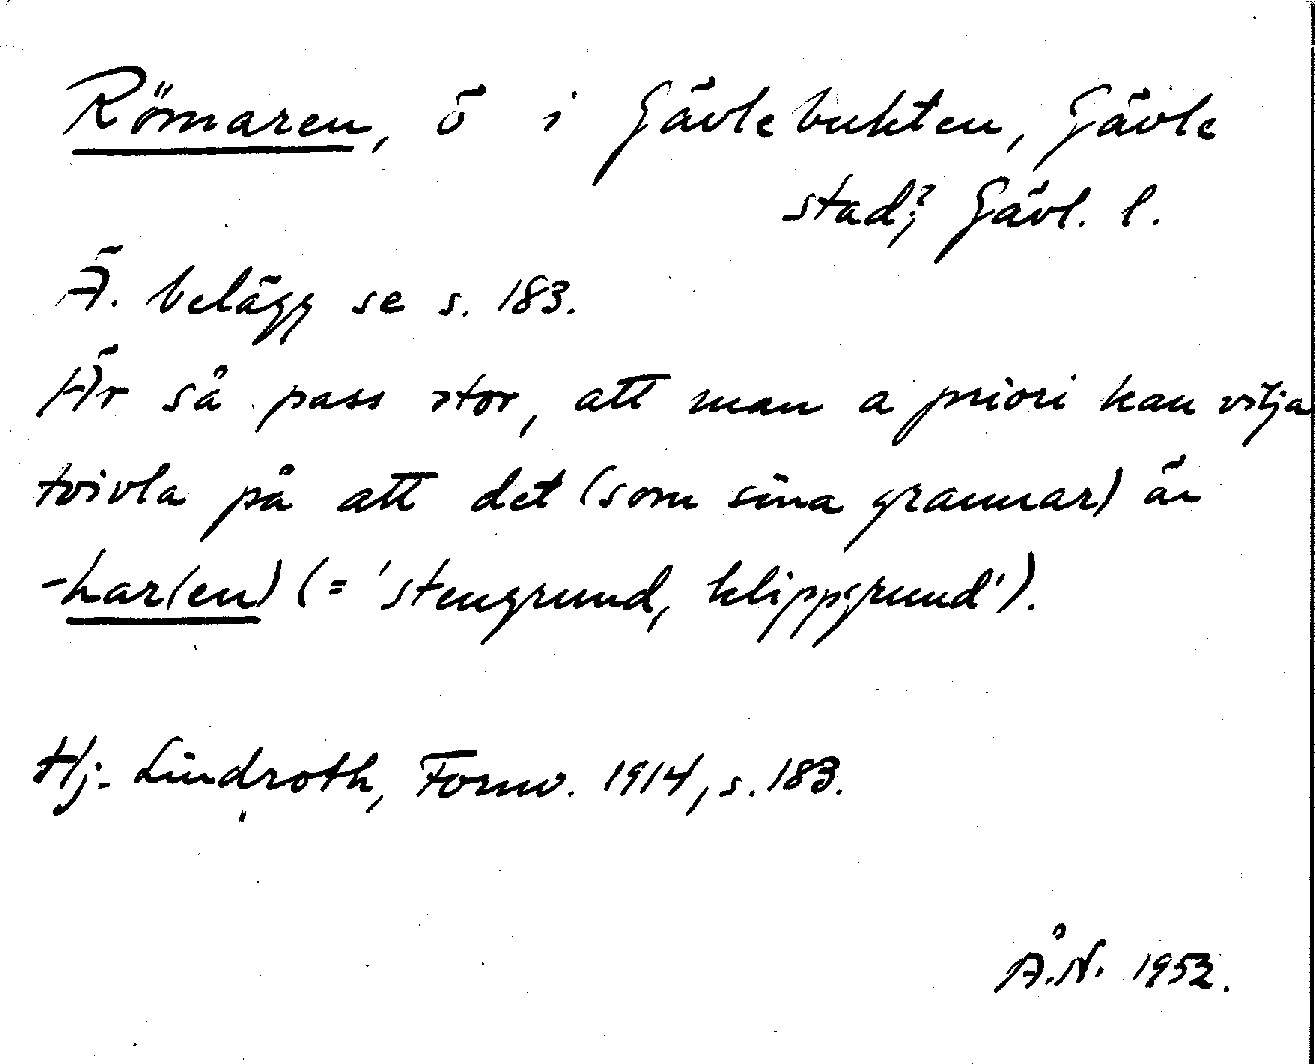 Römaren, ö i Gävlebukten, Gävle
stad? Gävl. l.
Ä. belägg se s. 183.
Är så pass stor, att man a priori kan vilja
tvivla på att det (som sina grannar) är
-har(en) (= 'stengrund, klippgrund').
Hj. Lindroth, Fornv. 1914, s. 183.
Å.N. 1952.